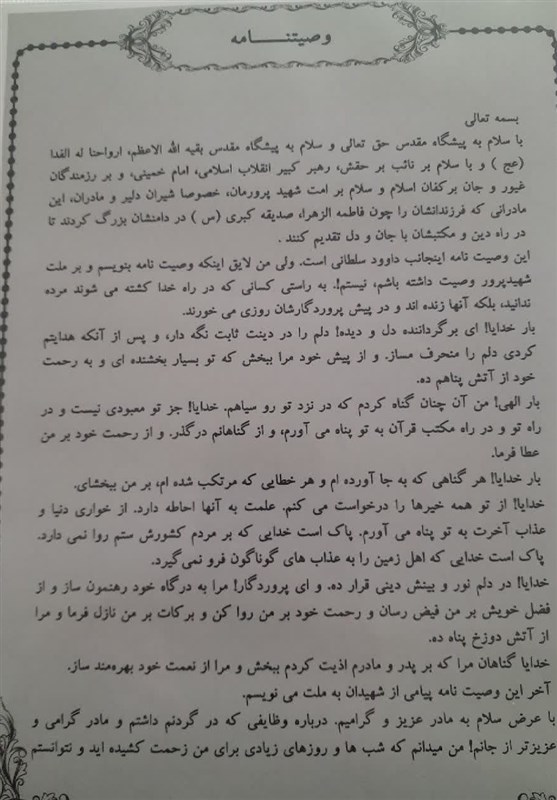 وصیتنـــامه
بسمه تعالی
با سلام به پیشگاه مقدس حق تعالی و سلام به پیشگاه مقدس بقیه الله الاعظم، ارواحنا له الفدا
(عج ) و با سلام بر نائب بر حقش، رهبر کبیر انقلاب اسلامی، امام خمینی، و بر رزمندگان
غیور و جان برکفان اسلام و سلام بر امت شهید پرورمان، خصوصا شیران دلیر و مادران، این
مادرانی که فرزندانشان را چون فاطمه الزهرا، صدیقه کبری (س ) در دامنشان بزرگ کردند تا
در راه دین و مکتبشان با جان و دل تقدیم کنند .
این وصیت نامه اینجانب داوود سلطانی است. ولی من لایق اینکه وصیت نامه بنویسم و بر ملت
شهیدپرور وصیت داشته باشم، نیستم!. به راستی کسانی که در راه خدا کشته می شوند مرده
ندانید، بلکه آنها زنده اند و در پیش پروردگارشان روزی می خورند.
بار خدایا! ای برگرداننده دل و دیده! دلم را در دینت ثابت نگه دار، و پس از آنکه هدایتم
کردی دلم را منحرف مساز. و از پیش خود مرا ببخش که تو بسیار بخشنده ای و به رحمت
خود از آتش پناهم ده.
بار الهی! من آن چنان گناه کردم که در نزد تو رو سیاهم. خدایا! جز تو معبودی نیست و در
راه تو و در راه مکتب قرآن به تو پناه می آورم، و از گناهانم درگذر. و از رحمت خود بر من
عطا فرما.
بار خدایا! هر گناهی که به جا آورده ام و هر خطایی که مرتکب شده ام، بر من ببخشای.
خدایا! از تو همه خیرها را درخواست می کنم. علمت به آنها احاطه دارد. از خواری دنیا و
عذاب آخرت به تو پناه می آورم. پاک است خدایی که بر مردم کشورش ستم روا نمی دارد.
پاک است خدایی که اهل زمین را به عذاب های گوناگون فرو نمی‌گیرد.
خدایا! در دلم نور و بینش دینی قرار ده. و ای پروردگار! مرا به درگاه خود رهنمون ساز و از
فضل خویش بر من فیض رسان و رحمت خود بر من روا کن و برکات بر من نازل فرما و مرا
از آتش دوزخ پناه ده.
خدایا گناهان مرا که بر پدر و مادرم اذیت کردم ببخش و مرا از نعمت خود بهره‌مند ساز.
آخر این وصیت نامه پیامی از شهیدان به ملت می نویسم.
با عرض سلام به مادر عزیز و گرامیم. درباره وظایفی که در گردنم داشتم و مادر گرامی و
عزیزتر از جانم! من میدانم که شب ها و روزهای زیادی برای من زحمت کشیده اید و نتوانستم